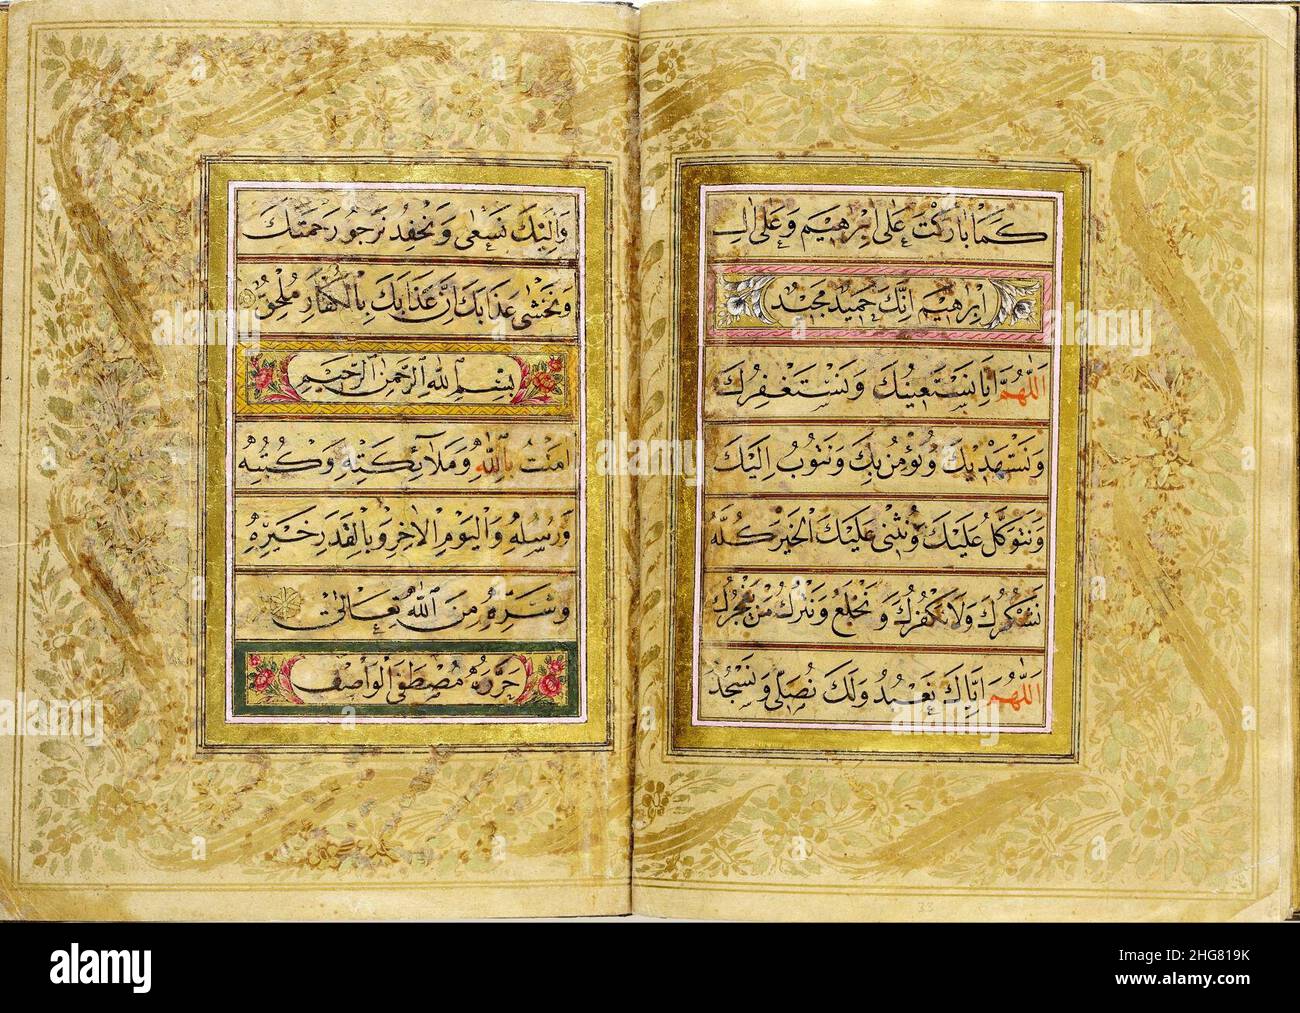 كَمَا بَارَكْتَ عَلٰى اِبْرٰهِيمَ وَعَلٰى اٰلِ
اِبْرٰهِيمَ اِنَّكَ حَمِيدٌ مَجِيدٌ
اَللّٰهُمَّ اِنَّا نَسْتَعِينُكَ وَنَسْتَغْفِرُكَ
وَنَسْتَهْدِيكَ وَنُؤْمِنُ بِكَ وَنَتُوبُ اِلَيْكَ
وَنَتَوَكَّلُ عَلَيْكَ وَنُثْنِى عَلَيْكَ الْخَيْرَ كُلَّهُ
نَشْكُرُكَ وَلَا نَكْفُرُكَ وَنَخْلَعُ وَنَتْرُكُ مَنْ يَفْجُرُكَ
اَللّٰهُمَّ اِيَّاكَ نَعْبُدُ وَلَكَ نُصَلِّى وَنَسْجُدُ
وَاِلَيْكَ نَسْعٰى وَنَحْفِدُ نَرْجُو رَحْمَتَكَ
وَنَخْشٰى عَذَابَكَ اِنَّ عَذَابَكَ بِالْكُفَّارِ مُلْحِقٌ
بِسْمِ اللّٰهِ الرَّحْمٰنِ الرَّحِيمِ
اٰمَنْتُ بِاللّٰهِ وَمَلٰٓائِكَتِهِ وَكُتُبِهِ
وَرُسُلِهِ وَالْيَوْمِ الْاٰخِرِ وَبِالْقَدَرِ خَيْرِهِ
وَشَرِّهِ مِنَ اللّٰهِ تَعَالٰى
حَرَّرَهُ مُصْطَفَى الْوَاصِفْ
33
alamy
Image ID: 2HG819K
www.alamy.com